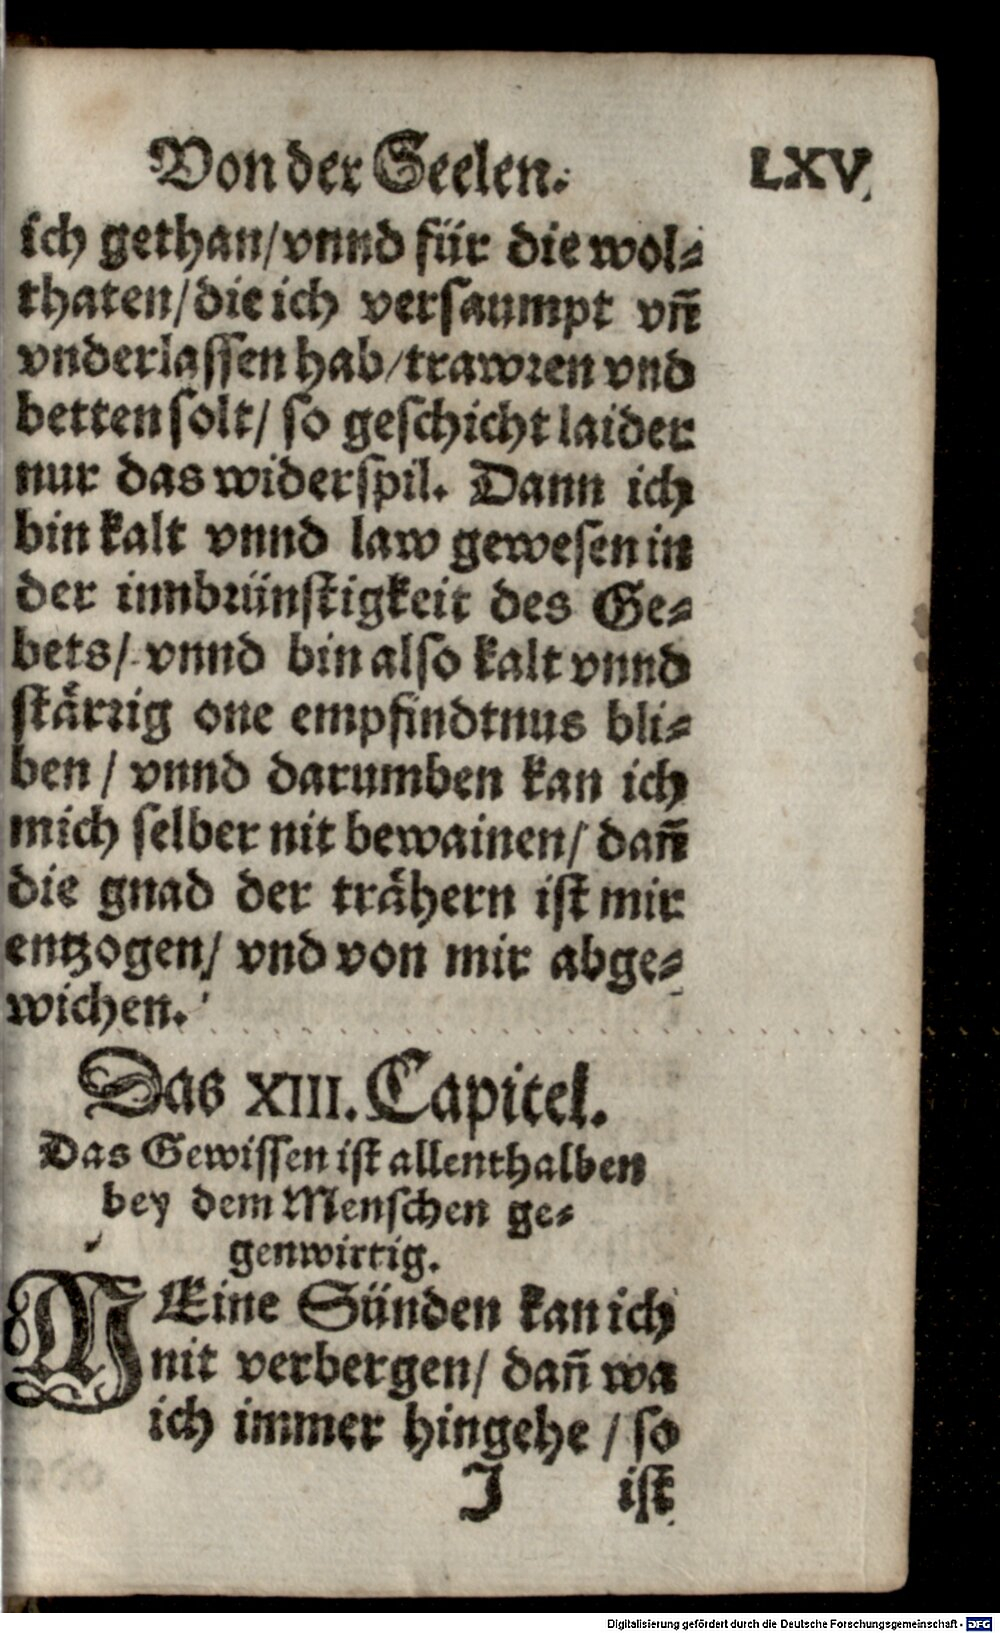 Von der Seelen. LXV.
ich gethan/vnnd für die wol⸗
thaten/die ich versaumpt vñ
vnderlassen hab/trawren vnd
betten solt/ so geschicht laider
nur das widerspil. Dann ich
bin kalt vnnd law gewesen in
der innbrünstigkeit des Ge⸗
bets/ vnnd bin also kalt vnnd
stårrig one empfindtnus bli⸗
ben / vnnd darumben kan ich
mich selber nit bewainen/ dañ
die gnad der tråhern ist mir
entzogen/ vnd von mir abge⸗
wichen.
Das XIII. Capitel.
Das Gewissen ist allenthalben
bey dem Menschen ge⸗
genwirtig.
MEine Sünden kan ich
nit verbergen/ dañ wa
ich immer hingehe / so
J ist
Digitalisierung gefördert durch die Deutsche Forschungsgemeinschaft - DFG